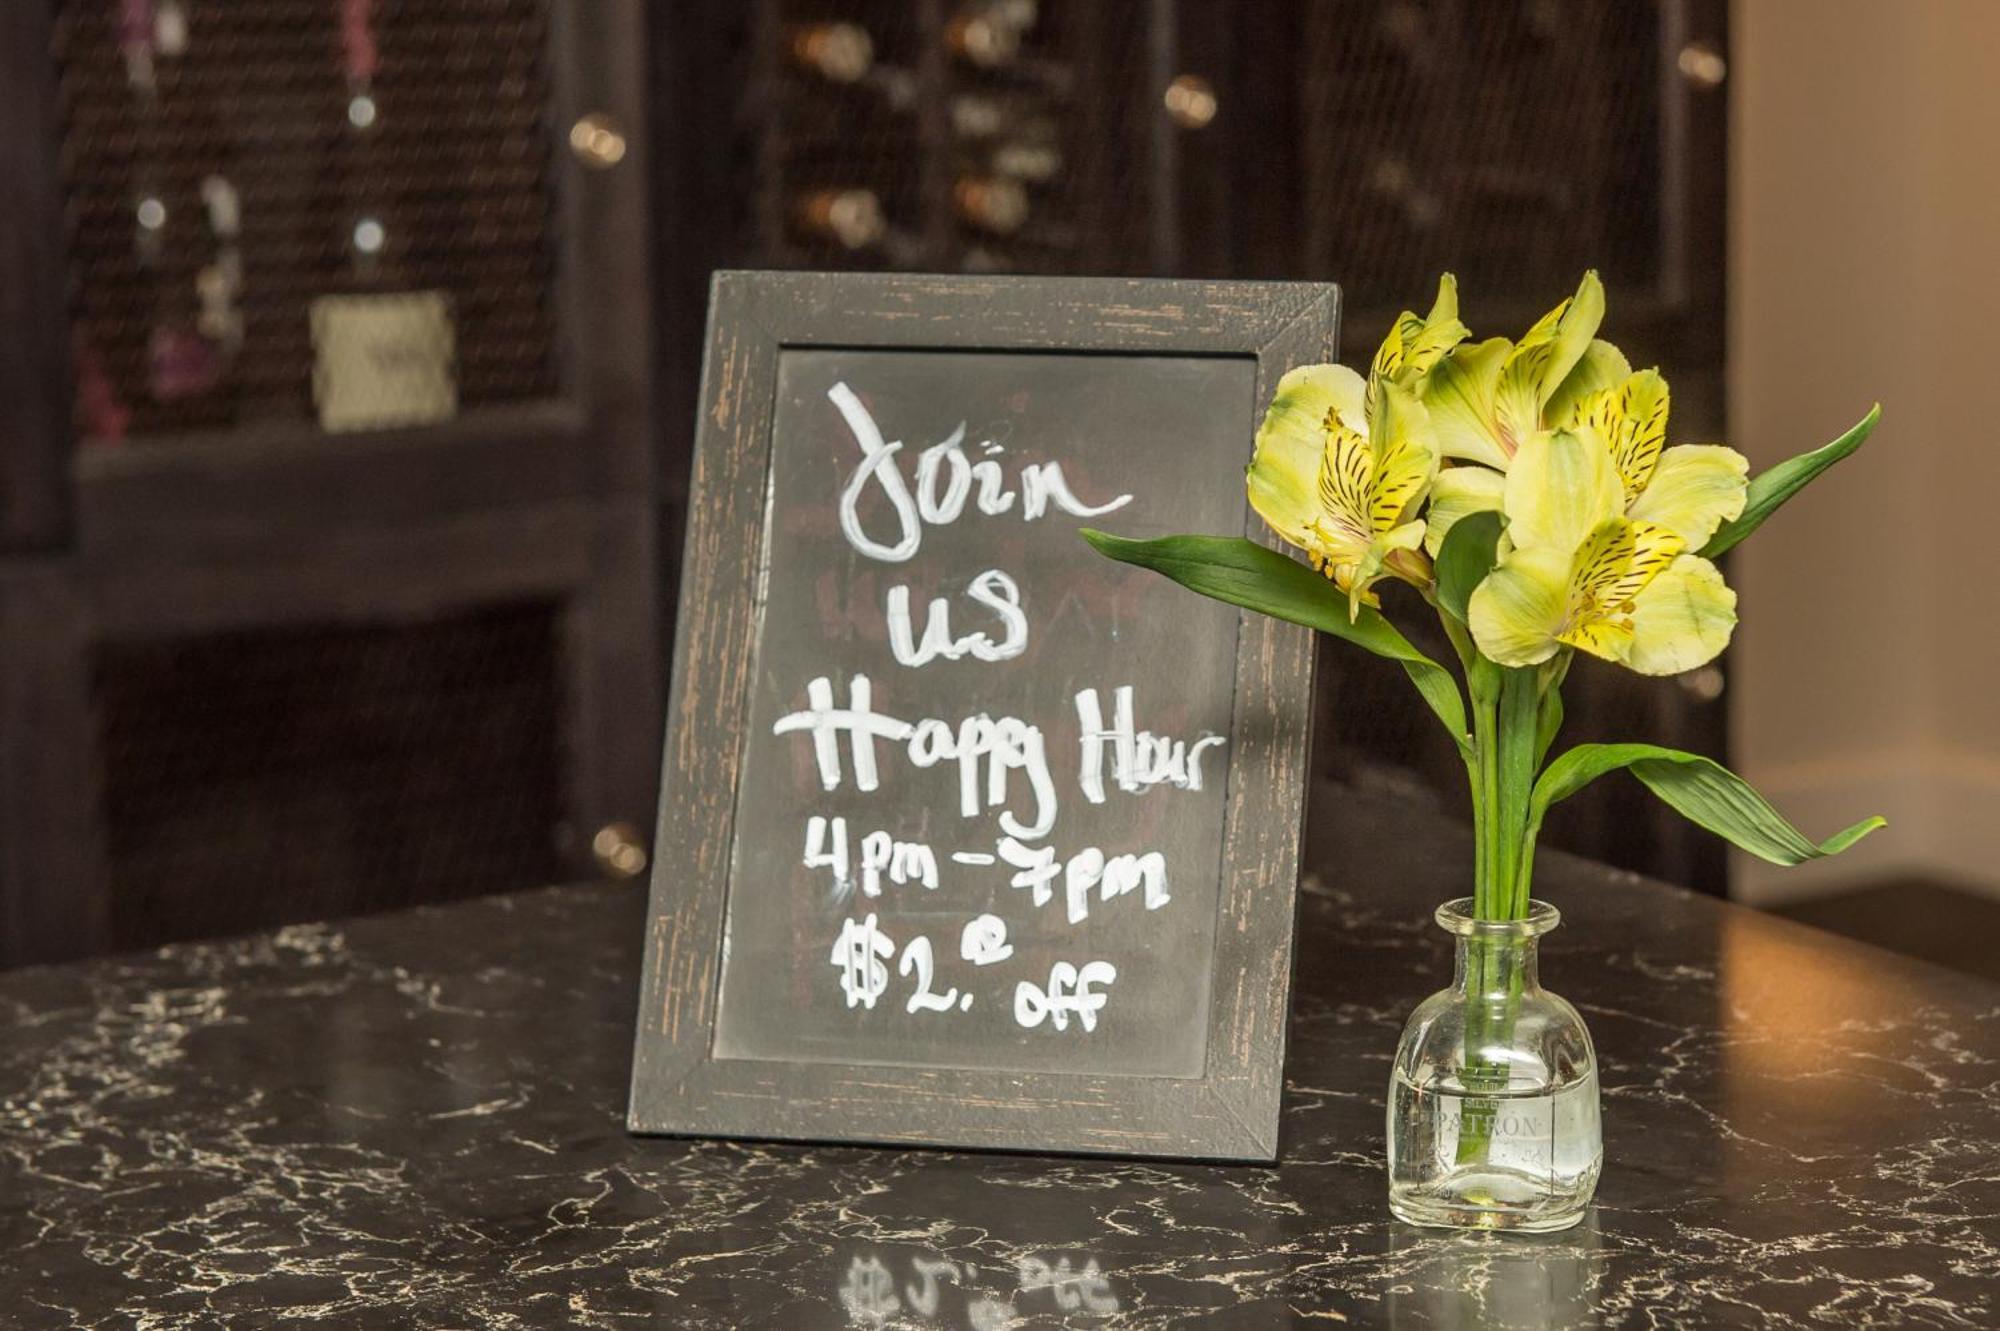 Join
us
Happy Hour
4pm - 7pm
$2.00 off
PATRÓN